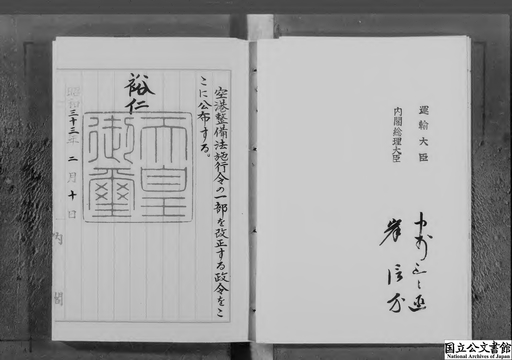 運輸大臣
内閣総理大臣
岸信介
空港整備法施行令の一部を改正する政令をこ
こに公布する。
裕仁
天皇
御璽
昭和三十三年二月十日
内閣
国立公文書館
National Archives of Japan